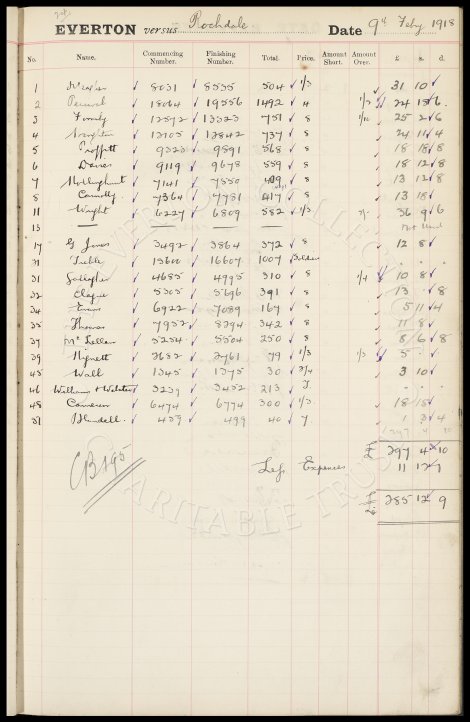 EVERTON versus Rochdale Date 9th Feby 1918
No. Name. Commencing Number. Finishing Number. Total. Price. Amount Short. Amount Over. £ s. d.
1 8031 8535 504 1/3 31 10
2 18064 19556 1492 4 1/3 24 18 6
3 12572 13323 751 8 25 2 6
4 12105 12842 737 8 24 11 4
5 Proffitt 9323 9891 568 8 18 18 8
6 Davies 9119 9678 559 8 18 12 8
7 7141 7550 409 8 13 12 8
8 Connolly 7364 7781 417 8 13 18
11 Wright 6227 6809 582 1/3 36 9 6
13 — — Not Used
17 G Jones 3492 3864 372 8 12 8
31 Treble 15600 16607 1007
31 Gallagher 4685 4995 310 8 1/4 10 8
32 Clague 5305 5696 391 8 13 . 8
34 Evans 6922 7089 167 8 5 11 4
35 Thomas 7952 8294 342 8 11 8
37 McLellan 5254 5504 250 8 8 6 8
39 Hignett 3682 3761 79 1/3 1/3 5
45 Wall 1345 1375 30 2/4 3 10
46 Williams & Webster 3239 3452 213
48 Cameron 6474 6774 300 1/3 18 15
51 Blundell 459 499 40 7 1 3 4
297 4 10
£ 297 4 10
CB 195
Less Expenses 11 12 1
£ 285 12 9
CHARITABLE TRUST